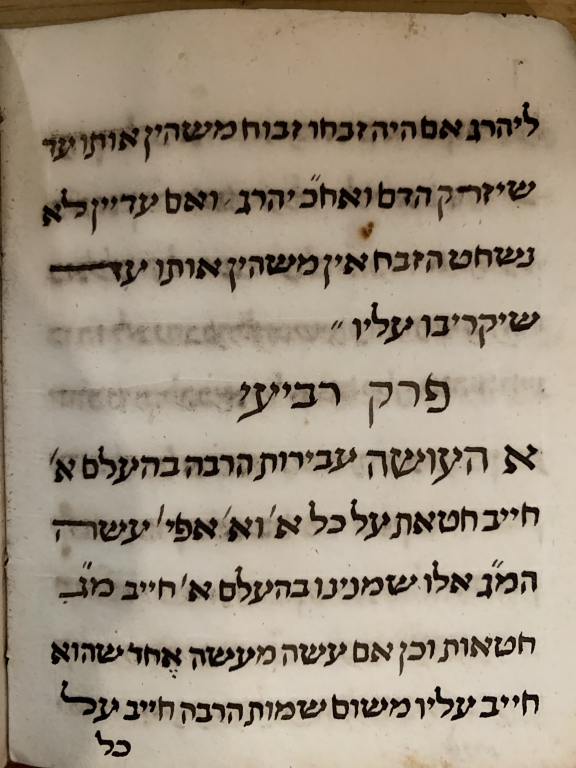 ליהרג אם היה זבחו זבוח משהין אותו עד
שיזריק הדם ואח״כ יהרג ואם עדיין לא
נשחט הזבח אין משהין אותו עד
שיקריבו עליו ״
פרק רביעי
א העושה עבירות הרבה בהעלם א׳
חייב חטאת על כל א׳ וא׳ אפי׳ עשרה
המ״ג אלו שמנינו בהעלם א׳ חייב מ״ג
חטאות וכן אם עשה מעשה אחד שהוא
חייב עליו משום שמות הרבה חייב על
כל